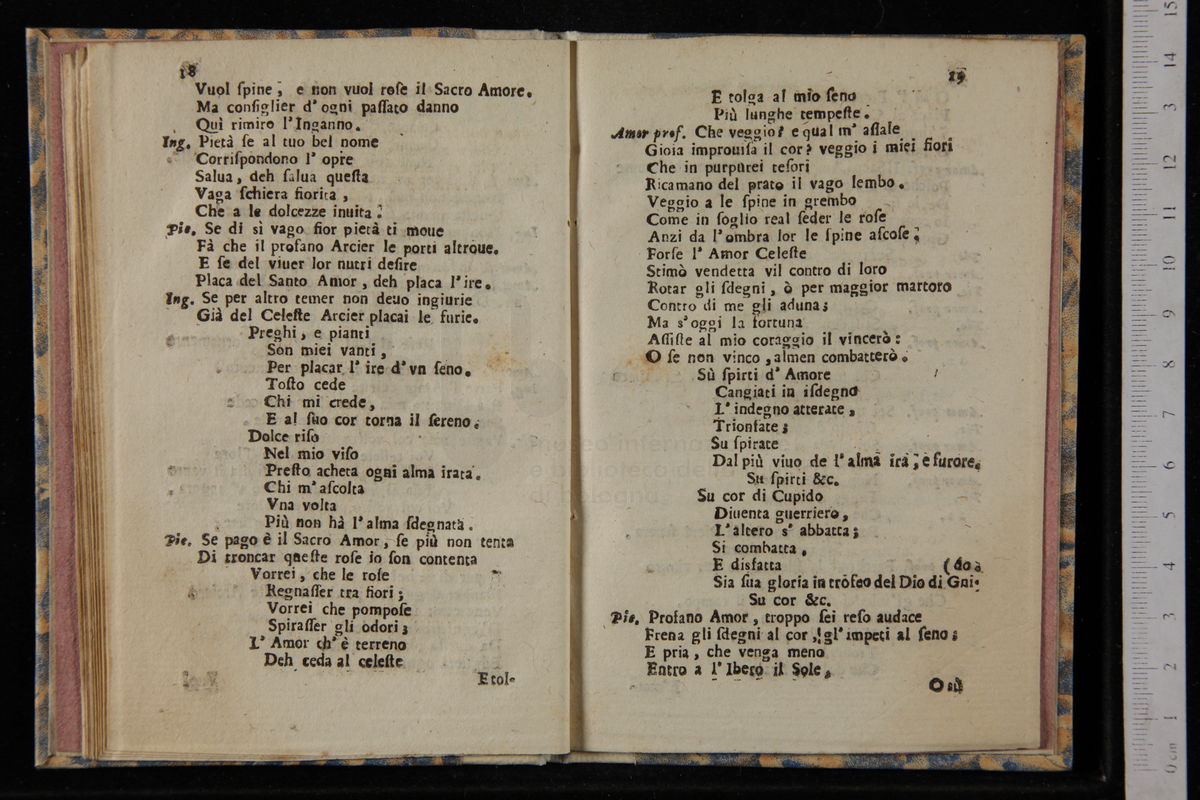 18
Vuol ſpine, e non vuol roſe il Sacro Amore.
Ma conſiglier d'ogni paſſato danno
Quì rimiro l'Inganno.
Ing. Pietà ſe al tuo bel nome
Corriſpondono l' opre
Salua, deh ſalua queſta
Vaga ſchiera fiorita,
Che a le dolcezze inuita.
Pie. Se di sì vago fior pietà ti moue
Fà che il profano Arcier le porti altroue.
E ſe del viuer lor nutri deſire
Placa del Santo Amor, deh placa l'ire.
Ing. Se per altro temer non deuo ingiurie
Già del Celeſte Arcier placai le furie.
Preghi, e pianti
Son miei vanti,
Per placar l' ire d' vn ſeno.
Toſto cede
Chi mi crede,
E al ſuo cor torna il ſereno.
Dolce riſo
Nel mio viſo
Preſto acheta ogni alma irata.
Chi m' aſcolta
Vna volta
Più non hà l'alma ſdegnata.
Pie. Se pago è il Sacro Amor, ſe più non tenta
Di troncar queſte roſe io ſon contenta
Vorrei, che le roſe
Regnaſſer tra fiori;
Vorrei che pompoſe
Spiraſſer gli odori;
L' Amor ch' è terreno
Deh ceda al celeſte
E tol-
19
E tolga al mio ſeno
Più lunghe tempeſte.
Amor prof. Che veggio? e qual m' aſſale
Gioia improuiſa il cor? veggio i miei fiori
Che in purpurei teſori
Ricamano del prato il vago lembo.
Veggio a le ſpine in grembo
Come in ſoglio real ſeder le roſe
Anzi da l'ombra lor le ſpine aſcoſe;
Forſe l' Amor Celeſte
Stimò vendetta vil contro di loro
Rotar gli ſdegni, ò per maggior martoro
Contro di me gli aduna;
Ma s'oggi la fortuna
Aſſiſte al mio coraggio il vincerò:
O ſe non vinco, almen combatterò.
Sù ſpirti d' Amore
Cangiati in iſdegno
L' indegno atterate,
Trionfate;
Su ſpirate
Dal più viuo de l'alma ira, e furore.
Su ſpirti &c.
Su cor di Cupido
Diuenta guerriero,
L'altero s' abbatta;
Si combatta,
E disfatta (do.
Sia ſua gloria in trofeo del Dio di Gni-
Su cor &c.
Pie. Profano Amor, troppo ſei reſo audace
Frena gli ſdegni al cor, gl' impeti al ſeno;
E pria, che venga meno
Entro a l' Ibero il Sole,
O sù